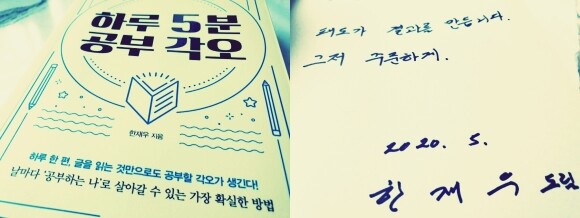 하루 5분
공부 각오
한재우 지음
하루 한 편, 글을 읽는 것만으로도 공부할 각오가 생긴다!
날마다 '공부하는 나'로 살아갈 수 있는 가장 확실한 방법
태도가 결과를 만듭니다.
그저 꾸준하게.
2020. 5.
한재우 드림